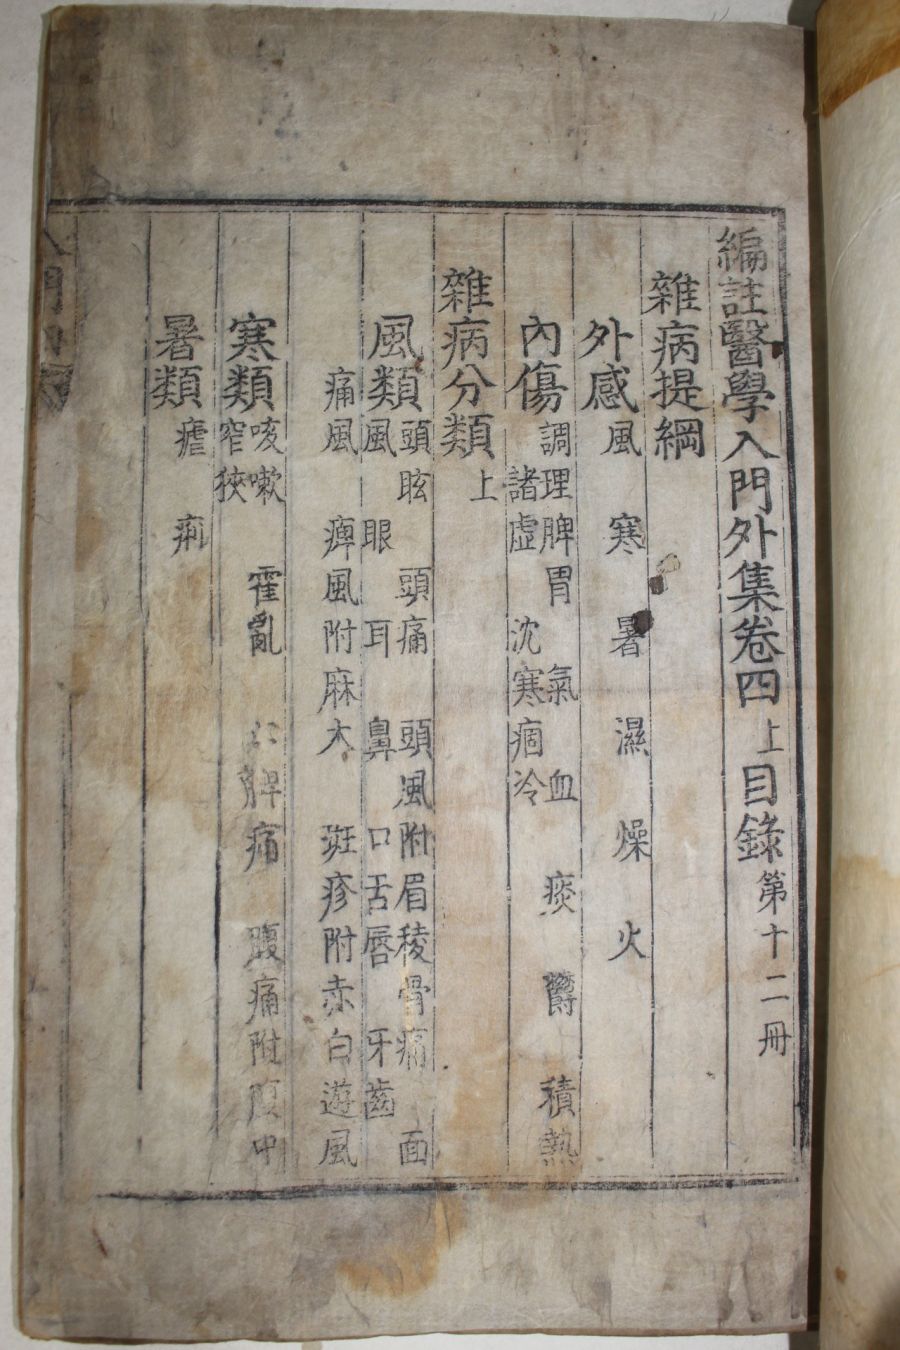 編註醫學入門外集卷四上目錄第十二冊
雜病提綱
外感 風 寒 暑 濕 燥 火
內傷 調理脾胃 氣 血 痰 鬱 積熱
諸虛 沈寒痼冷
雜病分類上
風類 頭眩 頭痛 頭風附眉稜骨痛 面
風 眼 耳 鼻 口舌唇 牙齒
痛風 痺風附麻木 斑疹附赤白遊風
寒類 咳嗽 霍亂 心脾痛 腹痛附腹中
窄狹
暑類 瘧 痢